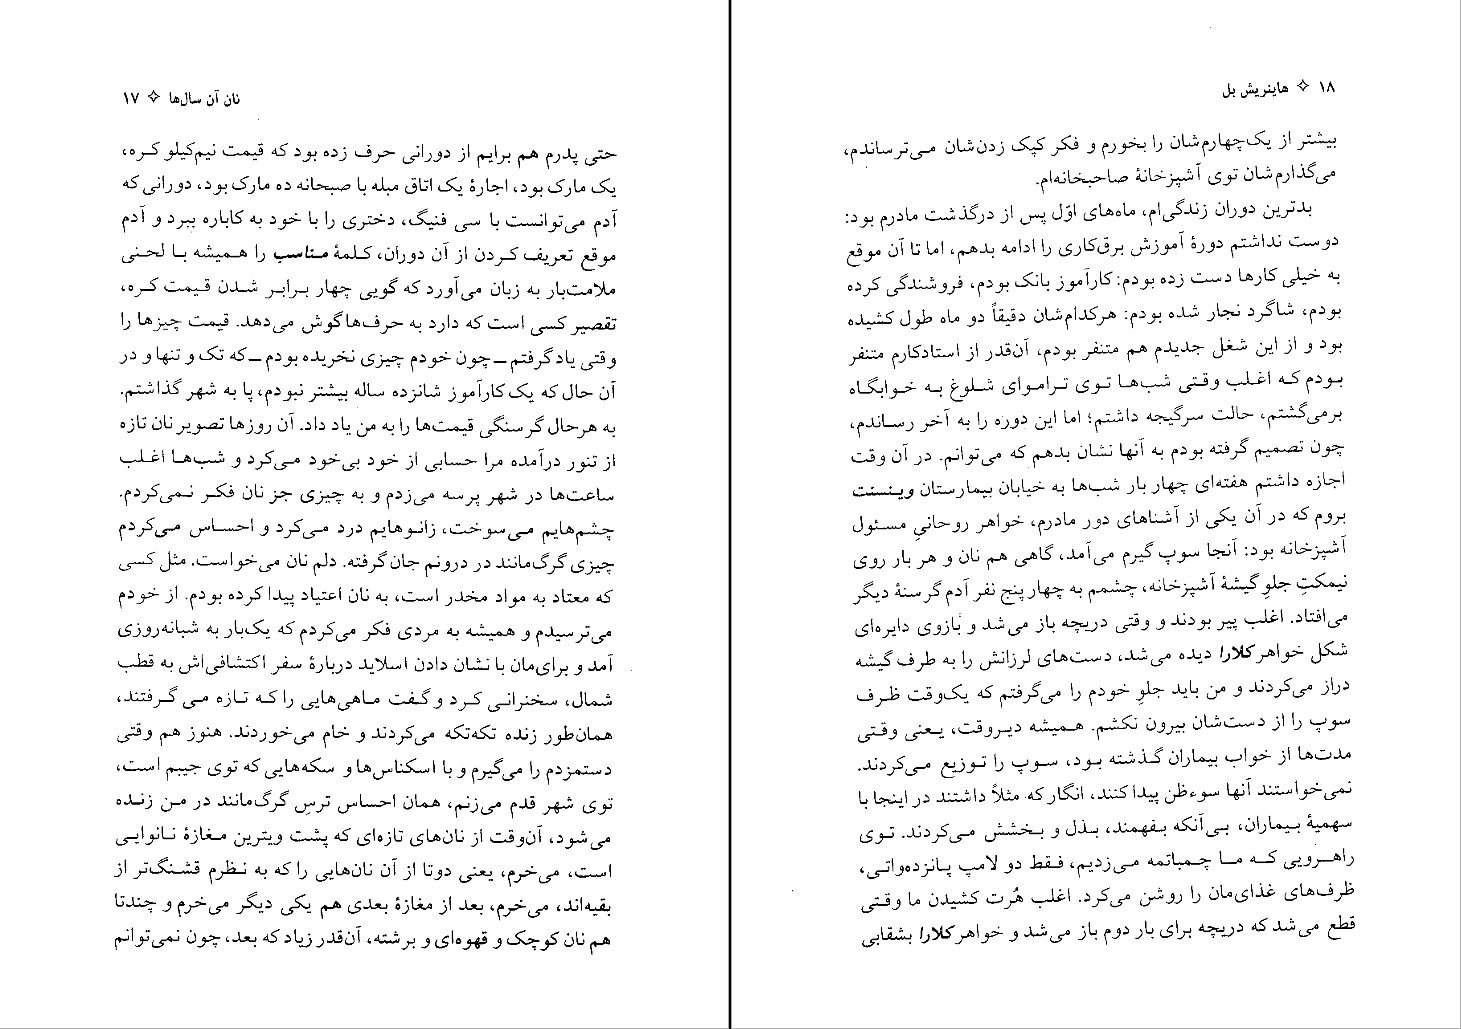 نان آن سال‌ها ✧ ۱۷
حتی پدرم هم برایم از دورانی حرف زده بود که قیمت نیم‌کیلو کره،
یک مارک بود، اجارهٔ یک اتاق مبله با صبحانه ده مارک بود، دورانی که
آدم می‌توانست با سی فنیگ، دختری را با خود به کاباره ببرد و آدم
موقع تعریف کردن از آن دوران، کلمهٔ مناسب را همیشه با لحنی
ملامت‌بار به زبان می‌آورد که گویی چهار برابر شدن قیمت کره،
تقصیر کسی است که دارد به حرف‌ها گوش می‌دهد. قیمت چیزها را
وقتی یاد گرفتم ــ چون خودم چیزی نخریده بودم ــ که تک و تنها و در
آن حال که یک کارآموز شانزده ساله بیشتر نبودم، پا به شهر گذاشتم.
به هرحال گرسنگی قیمت‌ها را به من یاد داد. آن روزها تصویر نان تازه
از تنور درآمده مرا حسابی از خود بی‌خود می‌کرد و شب‌ها اغلب
ساعت‌ها در شهر پرسه می‌زدم و به چیزی جز نان فکر نمی‌کردم.
چشم‌هایم می‌سوخت، زانوهایم درد می‌کرد و احساس می‌کردم
چیزی گرگ‌مانند در درونم جان گرفته. دلم نان می‌خواست. مثل کسی
که معتاد به مواد مخدر است، به نان اعتیاد پیدا کرده بودم. از خودم
می‌ترسیدم و همیشه به مردی فکر می‌کردم که یک‌بار به شبانه‌روزی
آمد و برای‌مان با نشان دادن اسلاید دربارهٔ سفر اکتشافی‌اش به قطب
شمال، سخنرانی کرد و گفت ماهی‌هایی را که تازه می‌گرفتند،
همان‌طور زنده تکه‌تکه می‌کردند و خام می‌خوردند. هنوز هم وقتی
دستمزدم را می‌گیرم و با اسکناس‌ها و سکه‌هایی که توی جیبم است،
توی شهر قدم می‌زنم، همان احساس ترسِ گرگ‌مانند در من زنده
می‌شود، آن‌وقت از نان‌های تازه‌ای که پشت ویترین مغازهٔ نانوایی
است، می‌خرم، یعنی دوتا از آن نان‌هایی را که به نظرم قشنگ‌تر از
بقیه‌اند، می‌خرم، بعد از مغازهٔ بعدی هم یکی دیگر می‌خرم و چندتا
هم نان کوچک و قهوه‌ای و برشته، آن‌قدر زیاد که بعد، چون نمی‌توانم
۱۸ ✧ هاینریش بل
بیشتر از یک‌چهارم‌شان را بخورم و فکر کپک زدن‌شان می‌ترساندم،
می‌گذارم‌شان توی آشپزخانهٔ صاحبخانه‌ام.
بدترین دوران زندگی‌ام، ماه‌های اوّل پس از درگذشت مادرم بود:
دوست نداشتم دورهٔ آموزش برق‌کاری را ادامه بدهم، اما تا آن موقع
به خیلی کارها دست زده بودم: کارآموز بانک بودم، فروشندگی کرده
بودم، شاگرد نجار شده بودم: هرکدام‌شان دقیقاً دو ماه طول کشیده
بود و از این شغل جدیدم هم متنفر بودم، آن‌قدر از استادکارم متنفر
بودم که اغلب وقتی شب‌ها توی تراموای شلوغ به خوابگاه
برمی‌گشتم، حالت سرگیجه داشتم؛ اما این دوره را به آخر رساندم،
چون تصمیم گرفته بودم به آنها نشان بدهم که می‌توانم. در آن وقت
اجازه داشتم هفته‌ای چهار بار شب‌ها به خیابان بیمارستان وینسنت
بروم که در آن یکی از آشناهای دور مادرم، خواهر روحانیِ مسئول
آشپزخانه بود: آنجا سوپ گیرم می‌آمد، گاهی هم نان و هر بار روی
نیمکتِ جلوِ گیشهٔ آشپزخانه، چشمم به چهار پنج نفر آدم گرسنهٔ دیگر
می‌افتاد. اغلب پیر بودند و وقتی دریچه باز می‌شد و بازوی دایره‌ای
شکل خواهر کلارا دیده می‌شد، دست‌های لرزانش را به طرف گیشه
دراز می‌کردند و من باید جلوِ خودم را می‌گرفتم که یک‌وقت ظرف
سوپ را از دست‌شان بیرون نکشم. همیشه دیروقت، یعنی وقتی
مدت‌ها از خواب بیماران گذشته بود، سوپ را توزیع می‌کردند.
نمی‌خواستند آنها سوءظن پیدا کنند، انگار که مثلاً داشتند در اینجا با
سهمیهٔ بیماران، بی‌آنکه بفهمند، بذل و بخشش می‌کردند. توی
راهرویی که ما چمباتمه می‌زدیم، فقط دو لامپ پانزده‌واتی،
ظرف‌های غذای‌مان را روشن می‌کرد. اغلب هُرت کشیدن ما وقتی
قطع می‌شد که دریچه برای بار دوم باز می‌شد و خواهر کلارا بشقابی